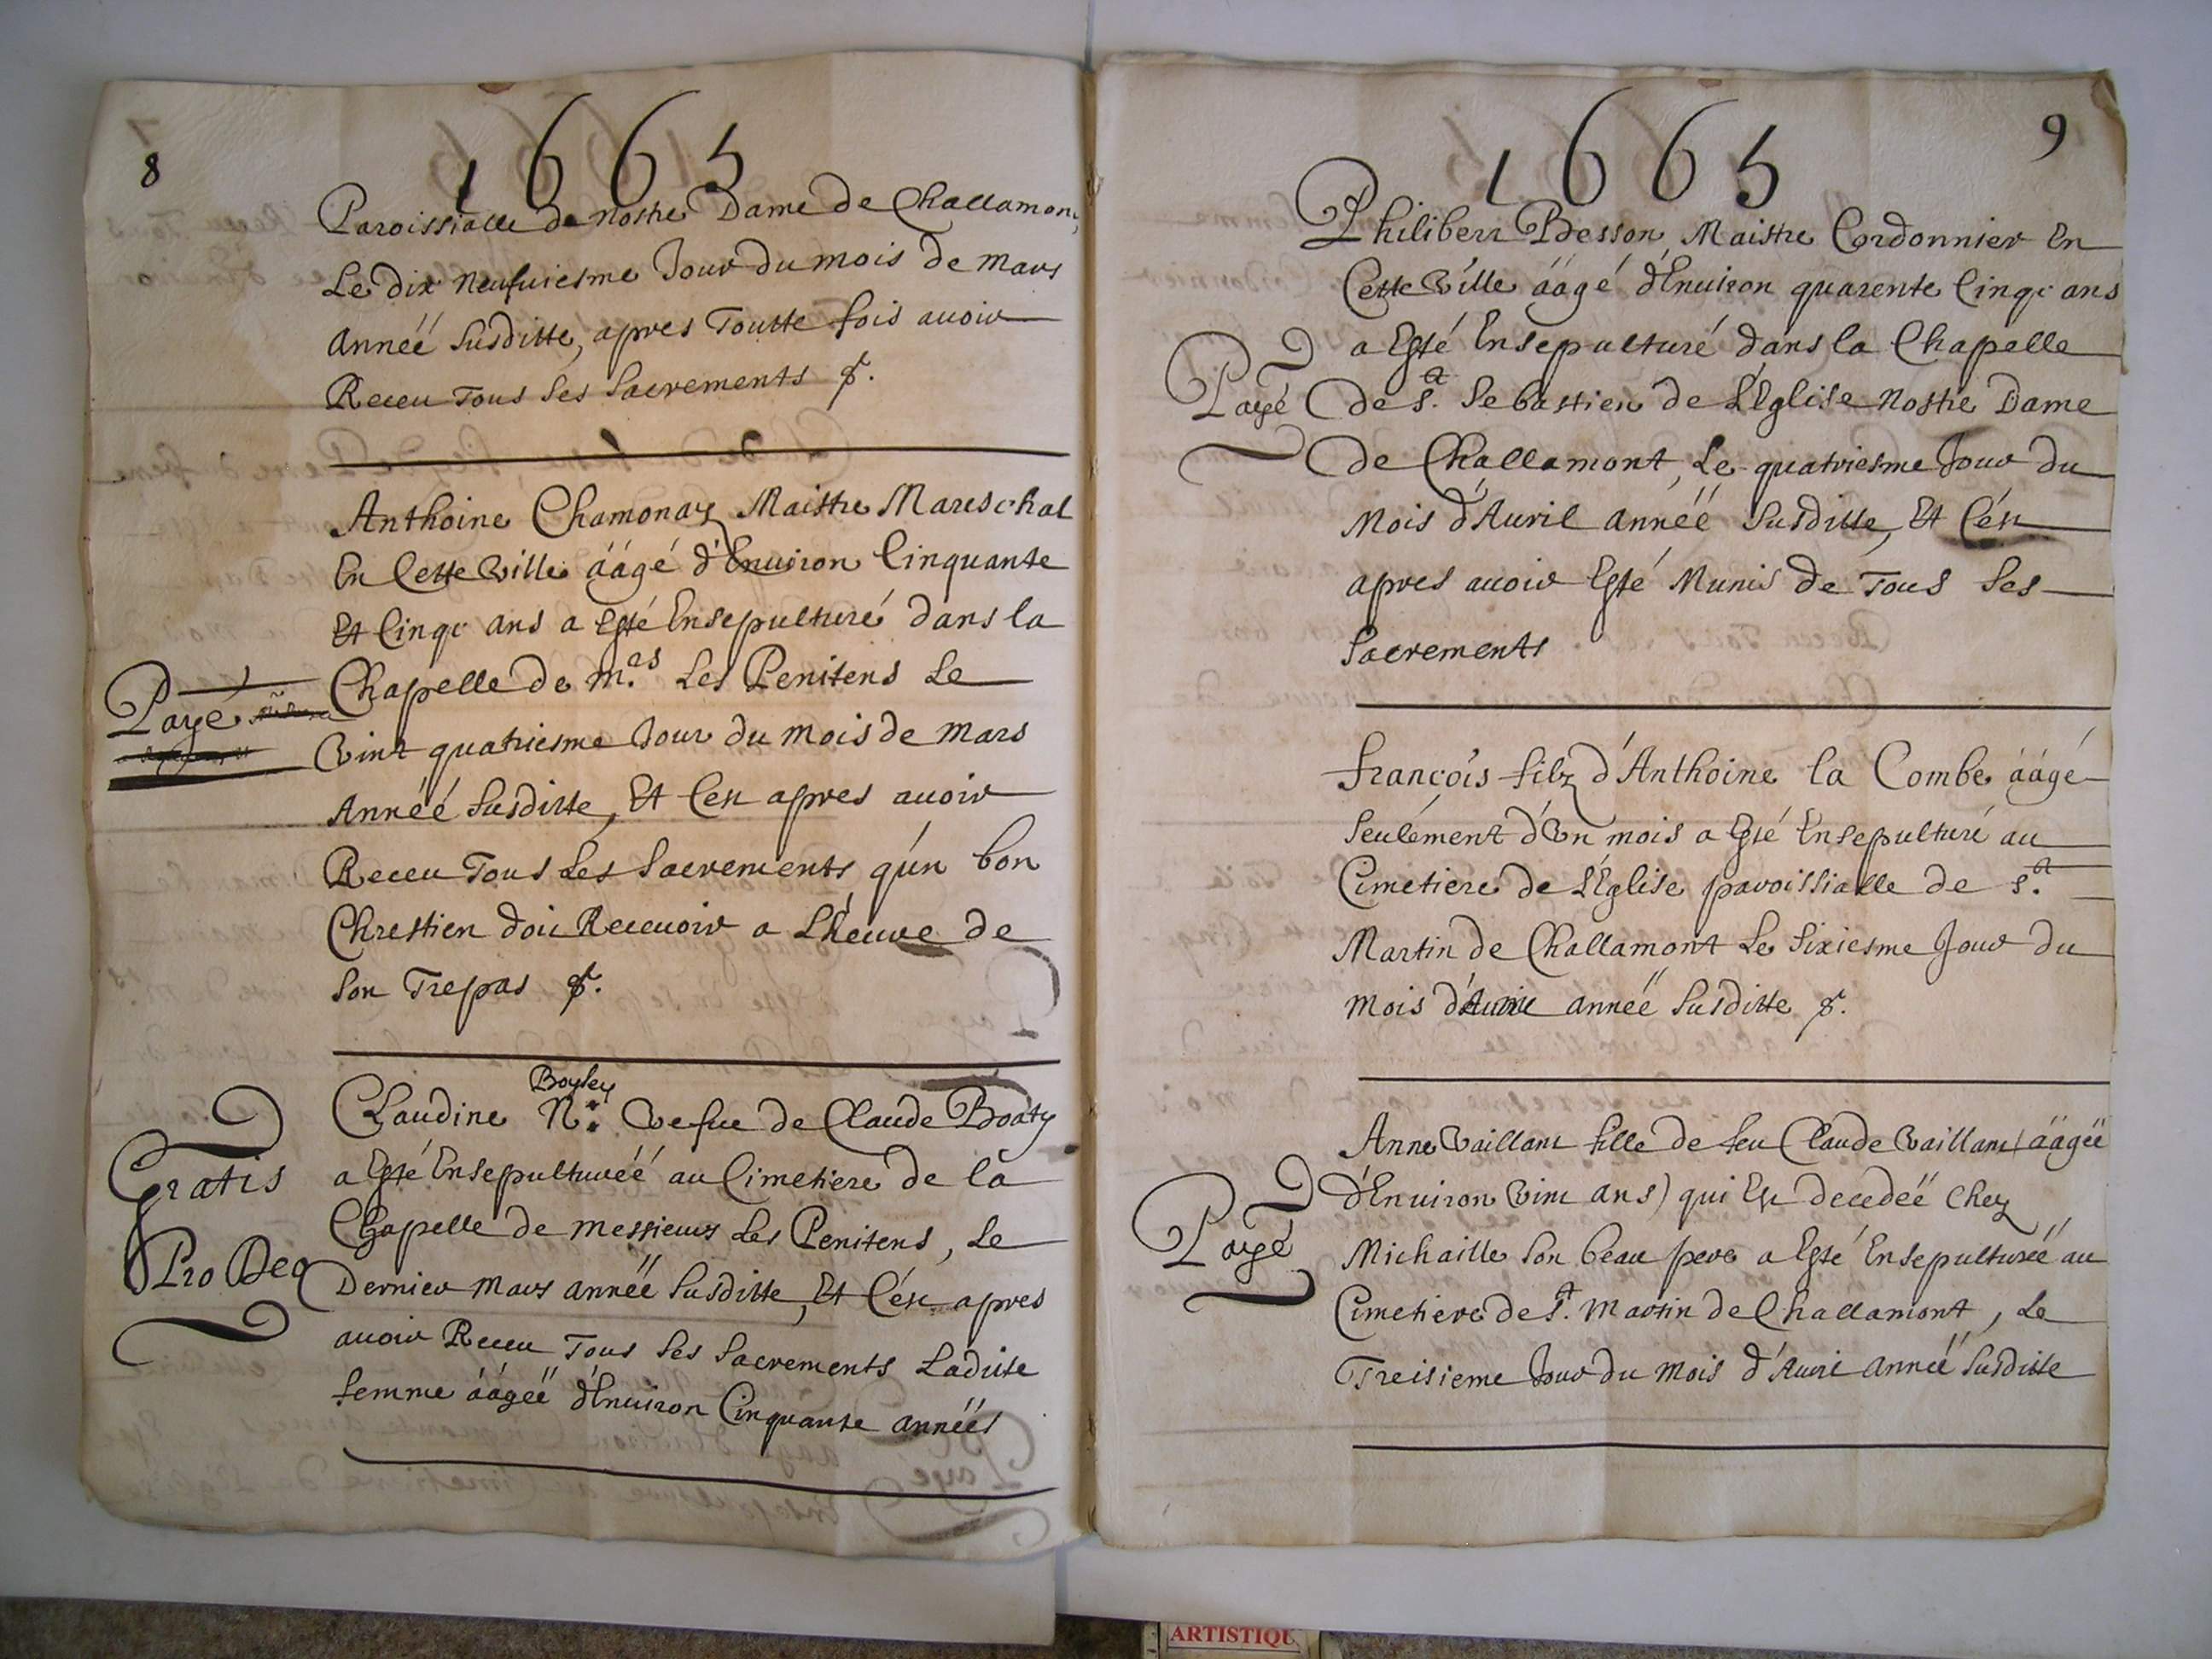 8
1665
Paroissialle de nostre Dame de Challamont,
Le dix neufuiesme Jour du mois de mars
Annéé susditte, apres Toutte fois auoir
Receu Tous ses sacrements &.
Anthoine Chamonay Maistre Mareschal
En Cette Ville áágé d'Enuiron Cinquante
Et Cinqc ans a Esté Ensepulturé dans la
Chapelle de m.rs Les Penitens Le
Payé
Vint quatriesme Jour du mois de mars
Annéé susditte, Et Cest apres auoir
Receu Tous Les sacrements qu'un bon
Chrestien doit Receuoir a L'heure de
son Trepas &.
Boyley
Claudine N: Vefue de Claude Boaty
a Esté Ensepulturéé au Cimetiere de la
Gratis
Chapelle de messieurs Les Penitens, Le
Pro Deo
Dernier mars annéé susditte, Et C'est apres
auoir Receu Tous ses sacrements Laditte
femme áágéé d'Enuiron Cinquante annéés
9
1665
Philibert Besson Maistre Cordonnier En
Cette Ville áágé d'Enuiron quarente Cinqc ans
a Esté Ensepulturé dans la Chapelle
Payé
de s.t Sebastien de L'Eglise Nostre Dame
de Challamont, Le quatriesme Jour du
Mois d'Auril annéé susditte, Et C'est
apres auoir Esté Munis de Tous ses
sacrements
François filz d'Anthoine la Combe áágé
seulement d'Vn mois a Esté Ensepulturé au
Cimetiere de L'Eglise paroissialle de s.t
Martin de Challamont Le sixiesme Jour du
mois d'Auril annéé susditte &.
Anne Vaillant fille de feu Claude Vaillant (áágéé
d'Enuiron Vint ans) qui Est decedéé Chez
Payé
Michaille son beau pere a Esté Ensepulturéé au
Cimetiere de s.t Martin de Challamont, Le
Treisieme Jour du Mois d'Auril annéé susditte
ARTISTIQU